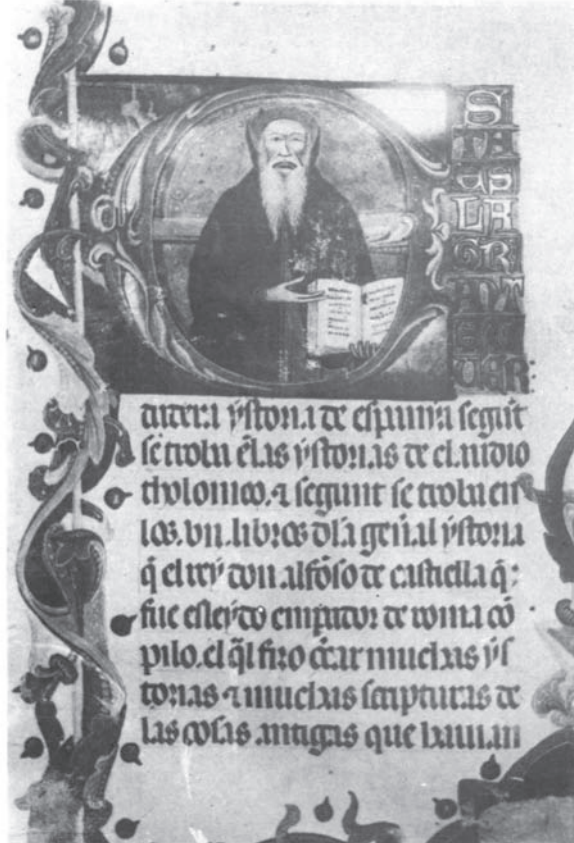 E
S
TA
ES
LA
GR
ANT
UER:
dadera ystoria de espanya segũt
sẽ troba ẽ las ystorias de claudio
tholomeo. ⁊ segunt se troba en
los .vii. libros dla geñal ystoria
q̃ el rey don alfonso de castiella q̃:
fue esleydo emp̃ador de roma cõ
pilo. el q̃l fizo c̃car muchas ys
torias ⁊ muchas scripturas de
las cosas antigas que hauian